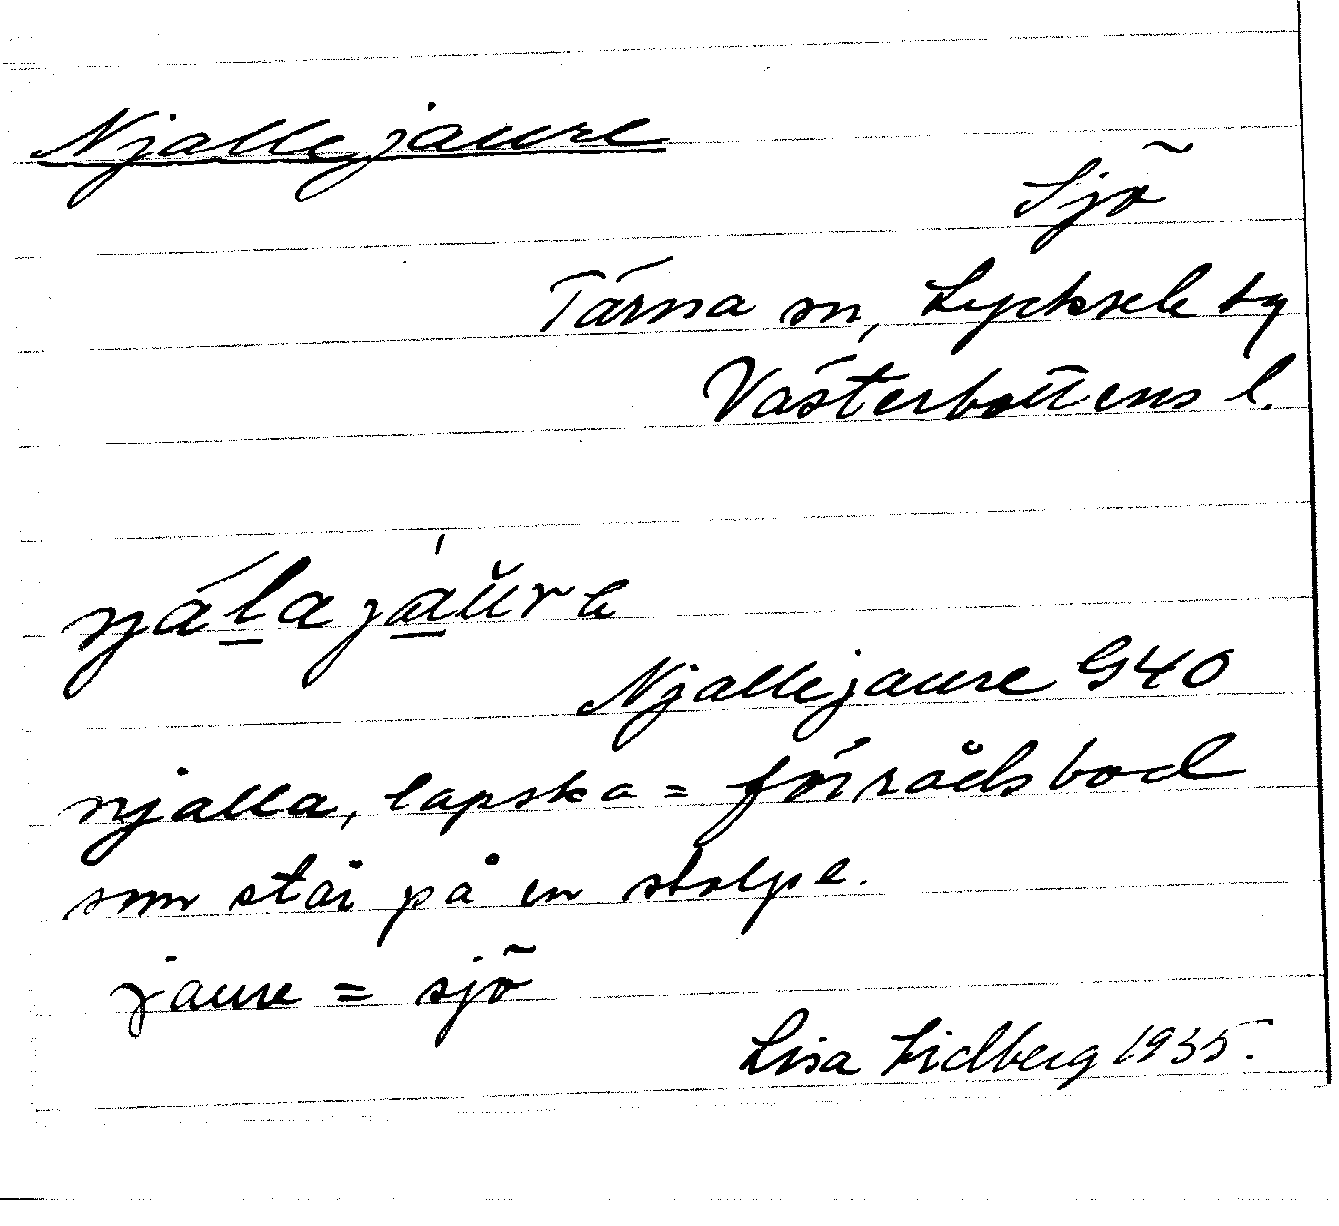 Njallejaure
Sjö
Tärna sn, Lycksele tg
Västerbottens l.
njálajáŭre
Njallejaure G40
njalla, lapska = förrådsbod
som står på en stolpe.
jaure = sjö
Lisa Lidberg 1935.